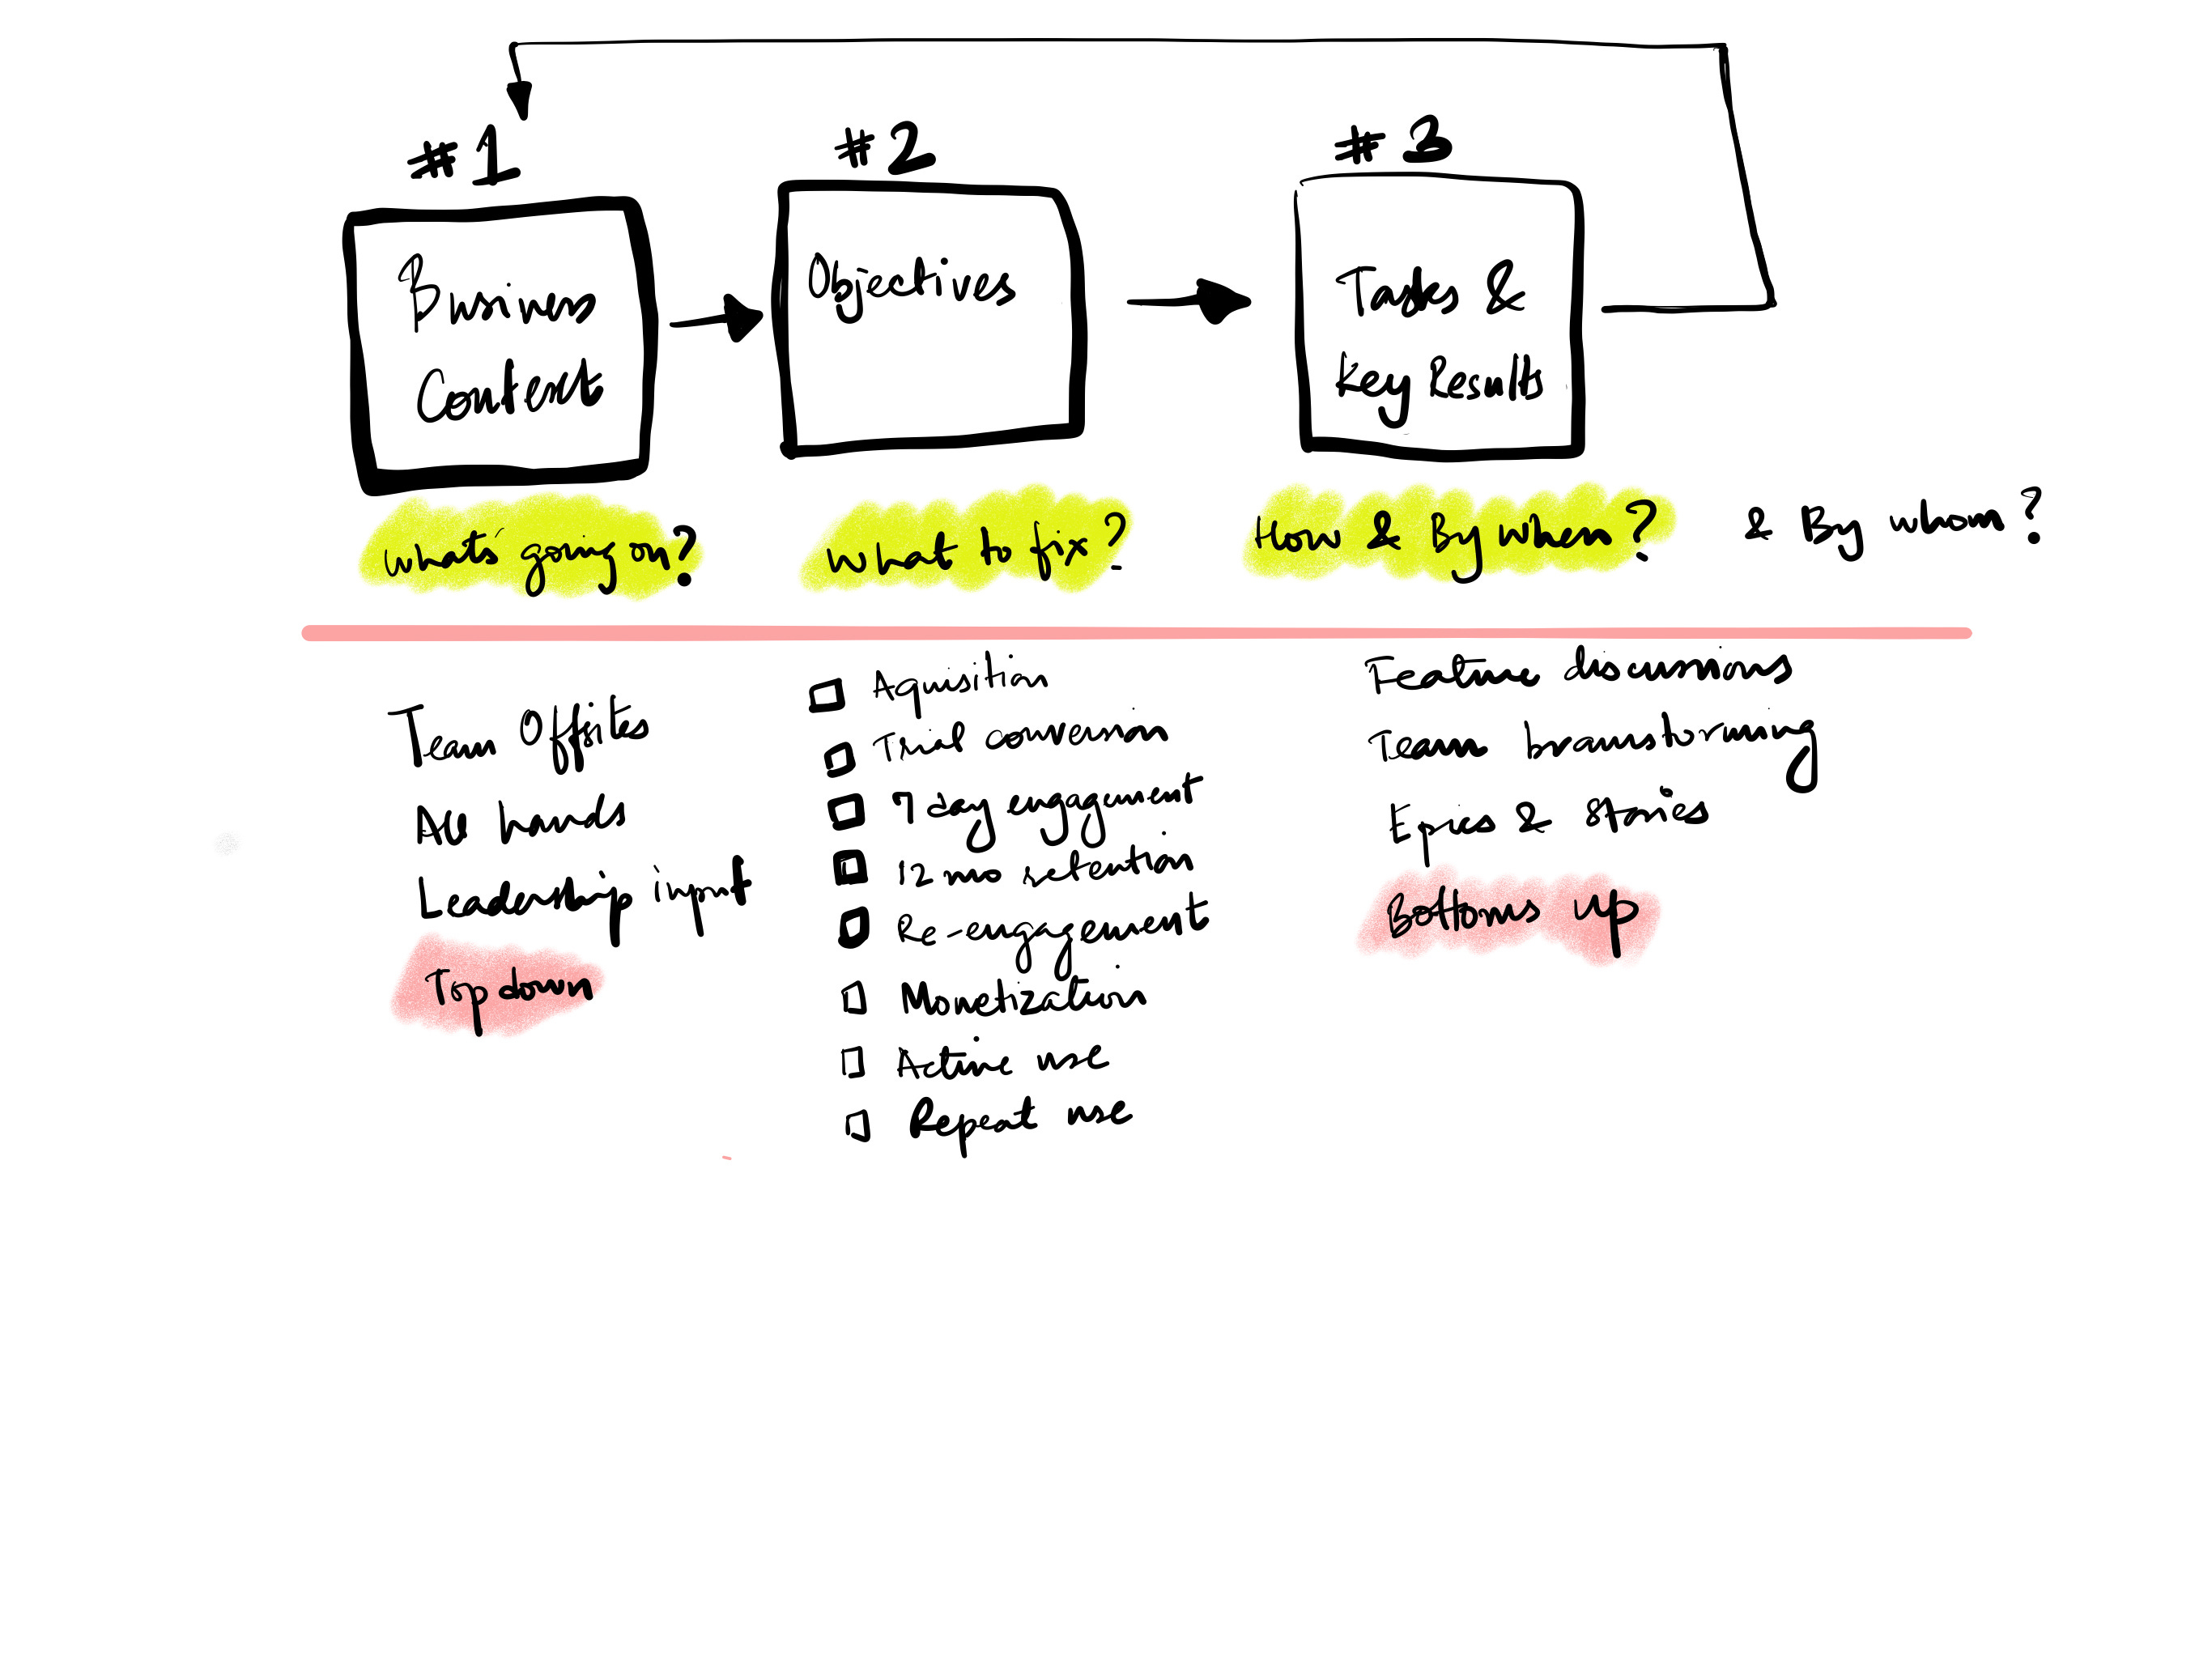 #1
Business
Context
what's going on?
#2
Objectives
what to fix?
#3
Tasks &
Key Results
How & By when?
& By whom?
Team Offsites
All hands
Leadership input
Top down
Aquisition
Trial conversion
7 day engagement
12 mo retention
Re-engagement
Monetization
Active use
Repeat use
Feature discussions
Team brainstorming
Epics & Stories
Bottoms up